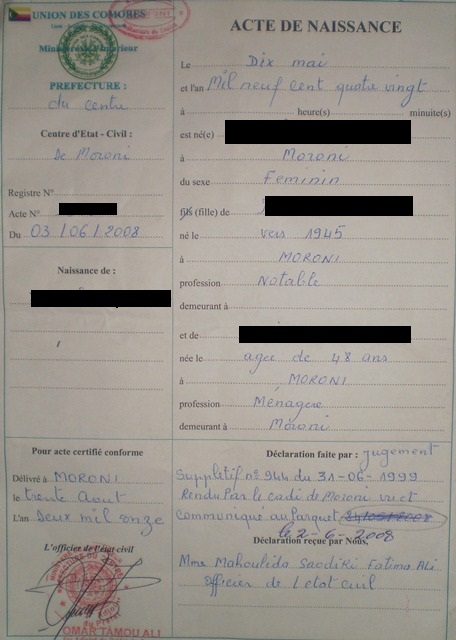 UNION DES COMORES
Ministère de l'Intérieur
PREFECTURE :
du centre
Centre d'Etat - Civil :
De Moroni
Registre N°
Acte N°
Du 03/06/2008
Naissance de :
Pour acte certifié conforme
Délivré à MORONI
le trente Aout
L'an Deux mil onze
L'officier de l'état civil
OMAR TAMOU ALI
ACTE DE NAISSANCE
Le Dix mai
et l'an Mil neuf cent quatre vingt
à heure(s) minute(s)
est né(e)
à Moroni
du sexe Feminin
fils (fille) de
né le vers 1945
à MORONI
profession Notable
demeurant à
et de
née le agee de 48 ans
à MORONI
profession Ménagere
demeurant à Moroni
Déclaration faite par : jugement
Suppletif n° 944 du 31-06-1999
Rendu Par le cadi de Moroni vu et
Communiqué au Parquet
le 2-6-2008
Déclaration reçue par Nous,
Mme Mahoulida Saodiki Fatima Ali
Officier de l'etat civil